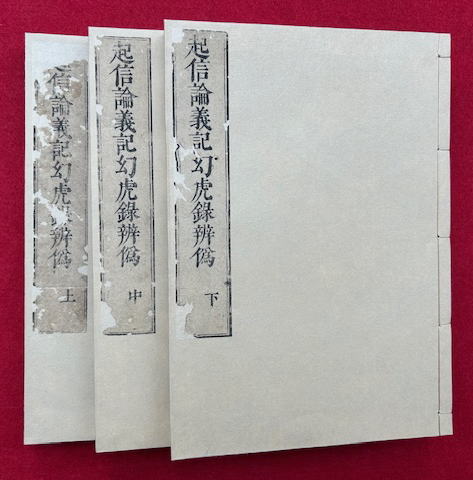 起信論義記幻虎錄辨僞 下
起信論義記幻虎錄辨僞 中
信論義記幻虎錄辨僞 上